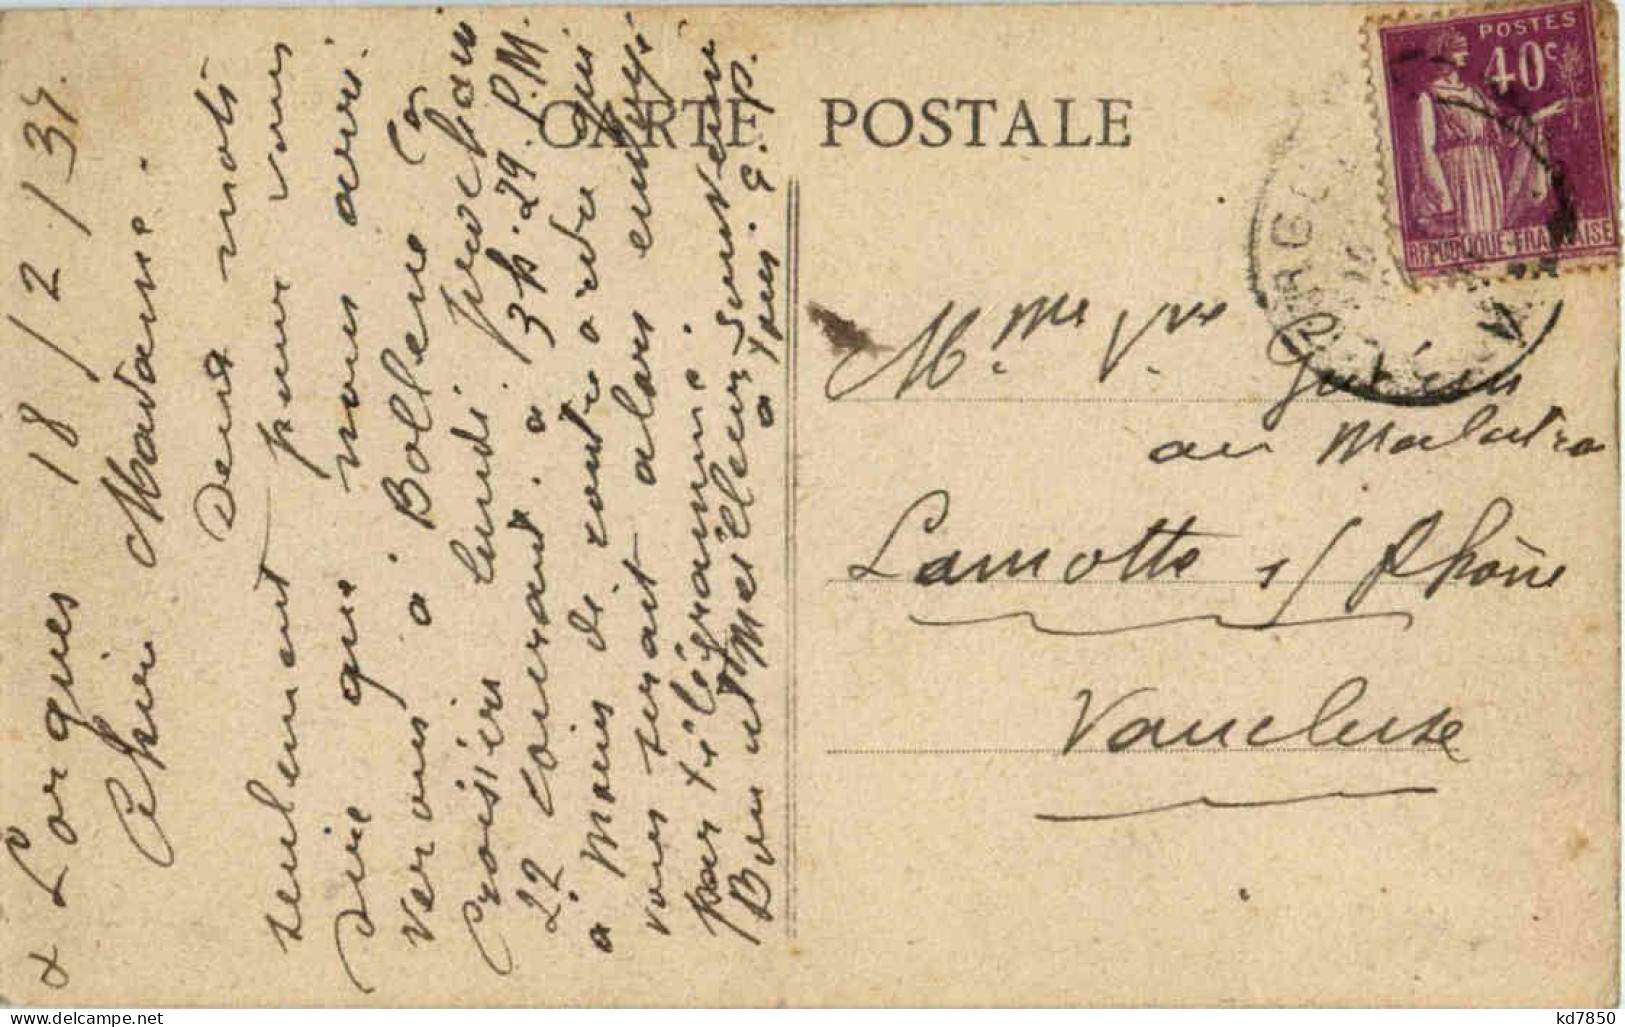 CARTE POSTALE
POSTES
40c
REPUBLIQUE-FRANÇAISE
Lorgues 18/2/37.
Chère Madame.
Deux mots
seulement pour vous
dire que nous arri
verons à Bollène la
Croisière lundi prochain
22 courant. a 3h.29 P.M.
a moins de contre ordre qui
vous serait alors envoyé
par télégramme.
Bon et Meilleur Souvenir
a tous. G. P.
Mme Vve
au
Lamotte s/ Rhône
Vaucluse
kd7850